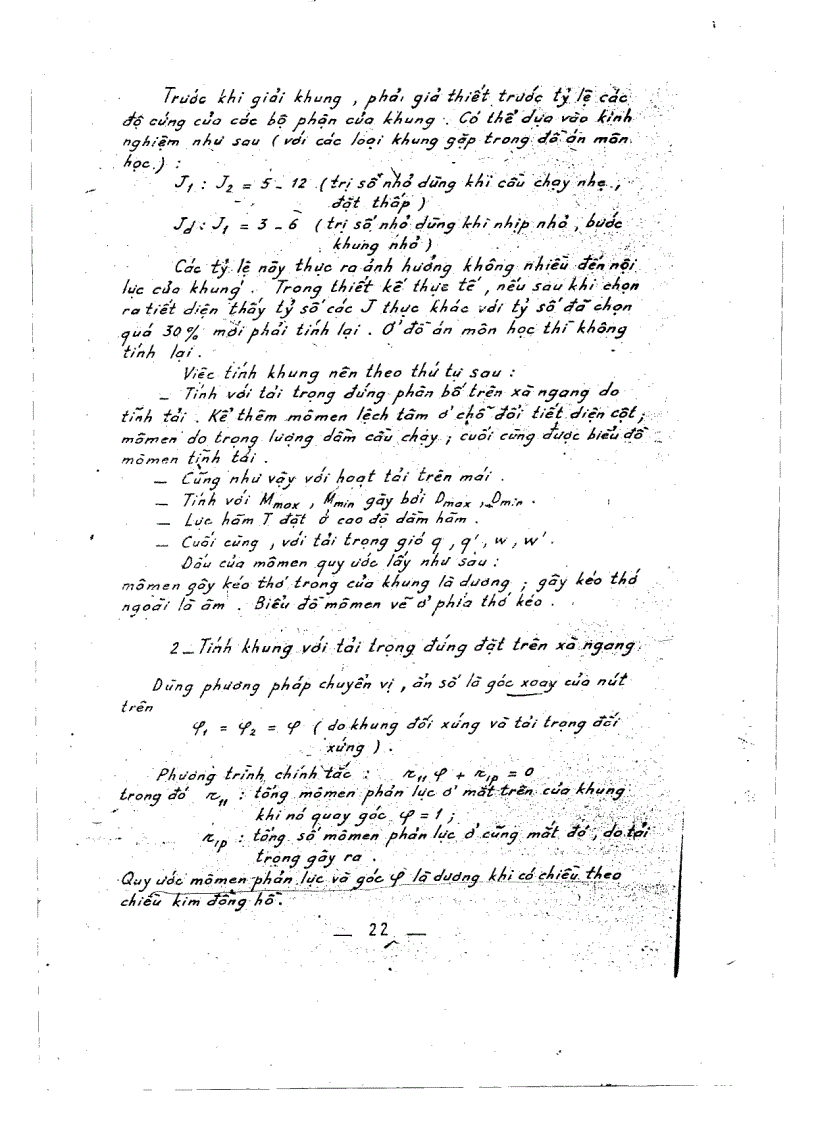 Trước khi giải khung , phải giả thiết trước tỷ lệ các
độ cứng của các bộ phận của khung . Có thể dựa vào kinh
nghiệm như sau ( với các loại khung gặp trong đồ án môn
học.) :
J₁ : J₂ = 5 - 12 ( trị số nhỏ dùng khi cầu chạy nhẹ ,
đặt thấp )
J_d : J₁ = 3 - 6 ( trị số nhỏ dùng khi nhịp nhỏ , bước
khung nhỏ )
Các tỷ lệ này thực ra ảnh hưởng không nhiều đến nội
lực của khung . Trong thiết kế thực tế , nếu sau khi chọn
ra tiết diện thấy tỷ số các J thực khác với tỷ số đã chọn
quá 30 % mới phải tính lại . Ở đồ án môn học thì không
tính lại .
Việc tính khung nên theo thứ tự sau :
_ Tính với tải trọng đứng phân bố trên xà ngang do
tĩnh tải . Kể thêm mômen lệch tâm ở chỗ đổi tiết diện cột ;
mômen do trọng lượng dầm cầu chạy ; cuối cùng được biểu đồ
mômen tĩnh tải .
_ Cũng như vậy với hoạt tải trên mái .
_ Tính với M_max , M_min gây bởi D_max , D_min .
_ Lực hãm T đặt ở cao độ dầm hãm .
_ Cuối cùng , với tải trọng gió q , q' , w , w' .
Dấu của mômen quy ước lấy như sau :
mômen gây kéo thớ trong của khung là dương ; gây kéo thớ
ngoài là âm . Biểu đồ mômen vẽ ở phía thớ kéo .
2 _ Tính khung với tải trọng đứng đặt trên xà ngang.
Dùng phương pháp chuyển vị , ẩn số là góc xoay của nút
trên
φ₁ = φ₂ = φ ( do khung đối xứng và tải trọng đối
xứng ) .
Phương trình chính tắc : r₁₁ φ + r₁p = 0
trong đó r₁₁ : tổng mômen phản lực ở mắt trên của khung
khi nó quay góc φ = 1 ;
r₁p : tổng số mômen phản lực ở cũng mắt đó , do tải
trọng gây ra .
Quy ước mômen phản lực và góc φ là dương khi có chiều theo
chiều kim đồng hồ .
_ 22 _